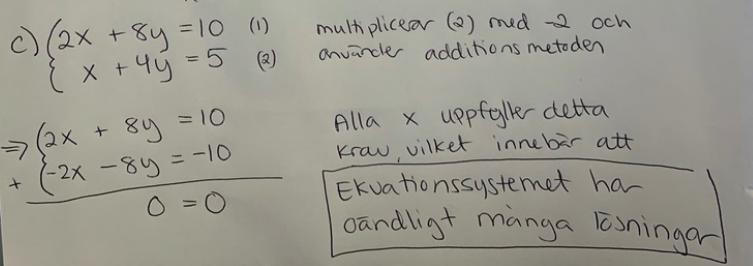 c) { 2x + 8y = 10 (1) multiplicerar (2) med -2 och
x + 4y = 5 (2) använder additionsmetoden
⇒ { 2x + 8y = 10 Alla x uppfyller detta
+ -2x - 8y = -10 krav, vilket innebär att
0 = 0 Ekvationssystemet har
oändligt många lösningar